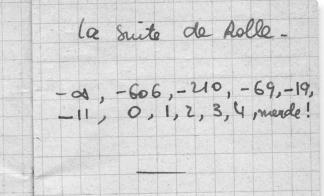 La suite de Rolle.
-∞, -606, -210, -69, -19,
-11, 0, 1, 2, 3, 4, merde!